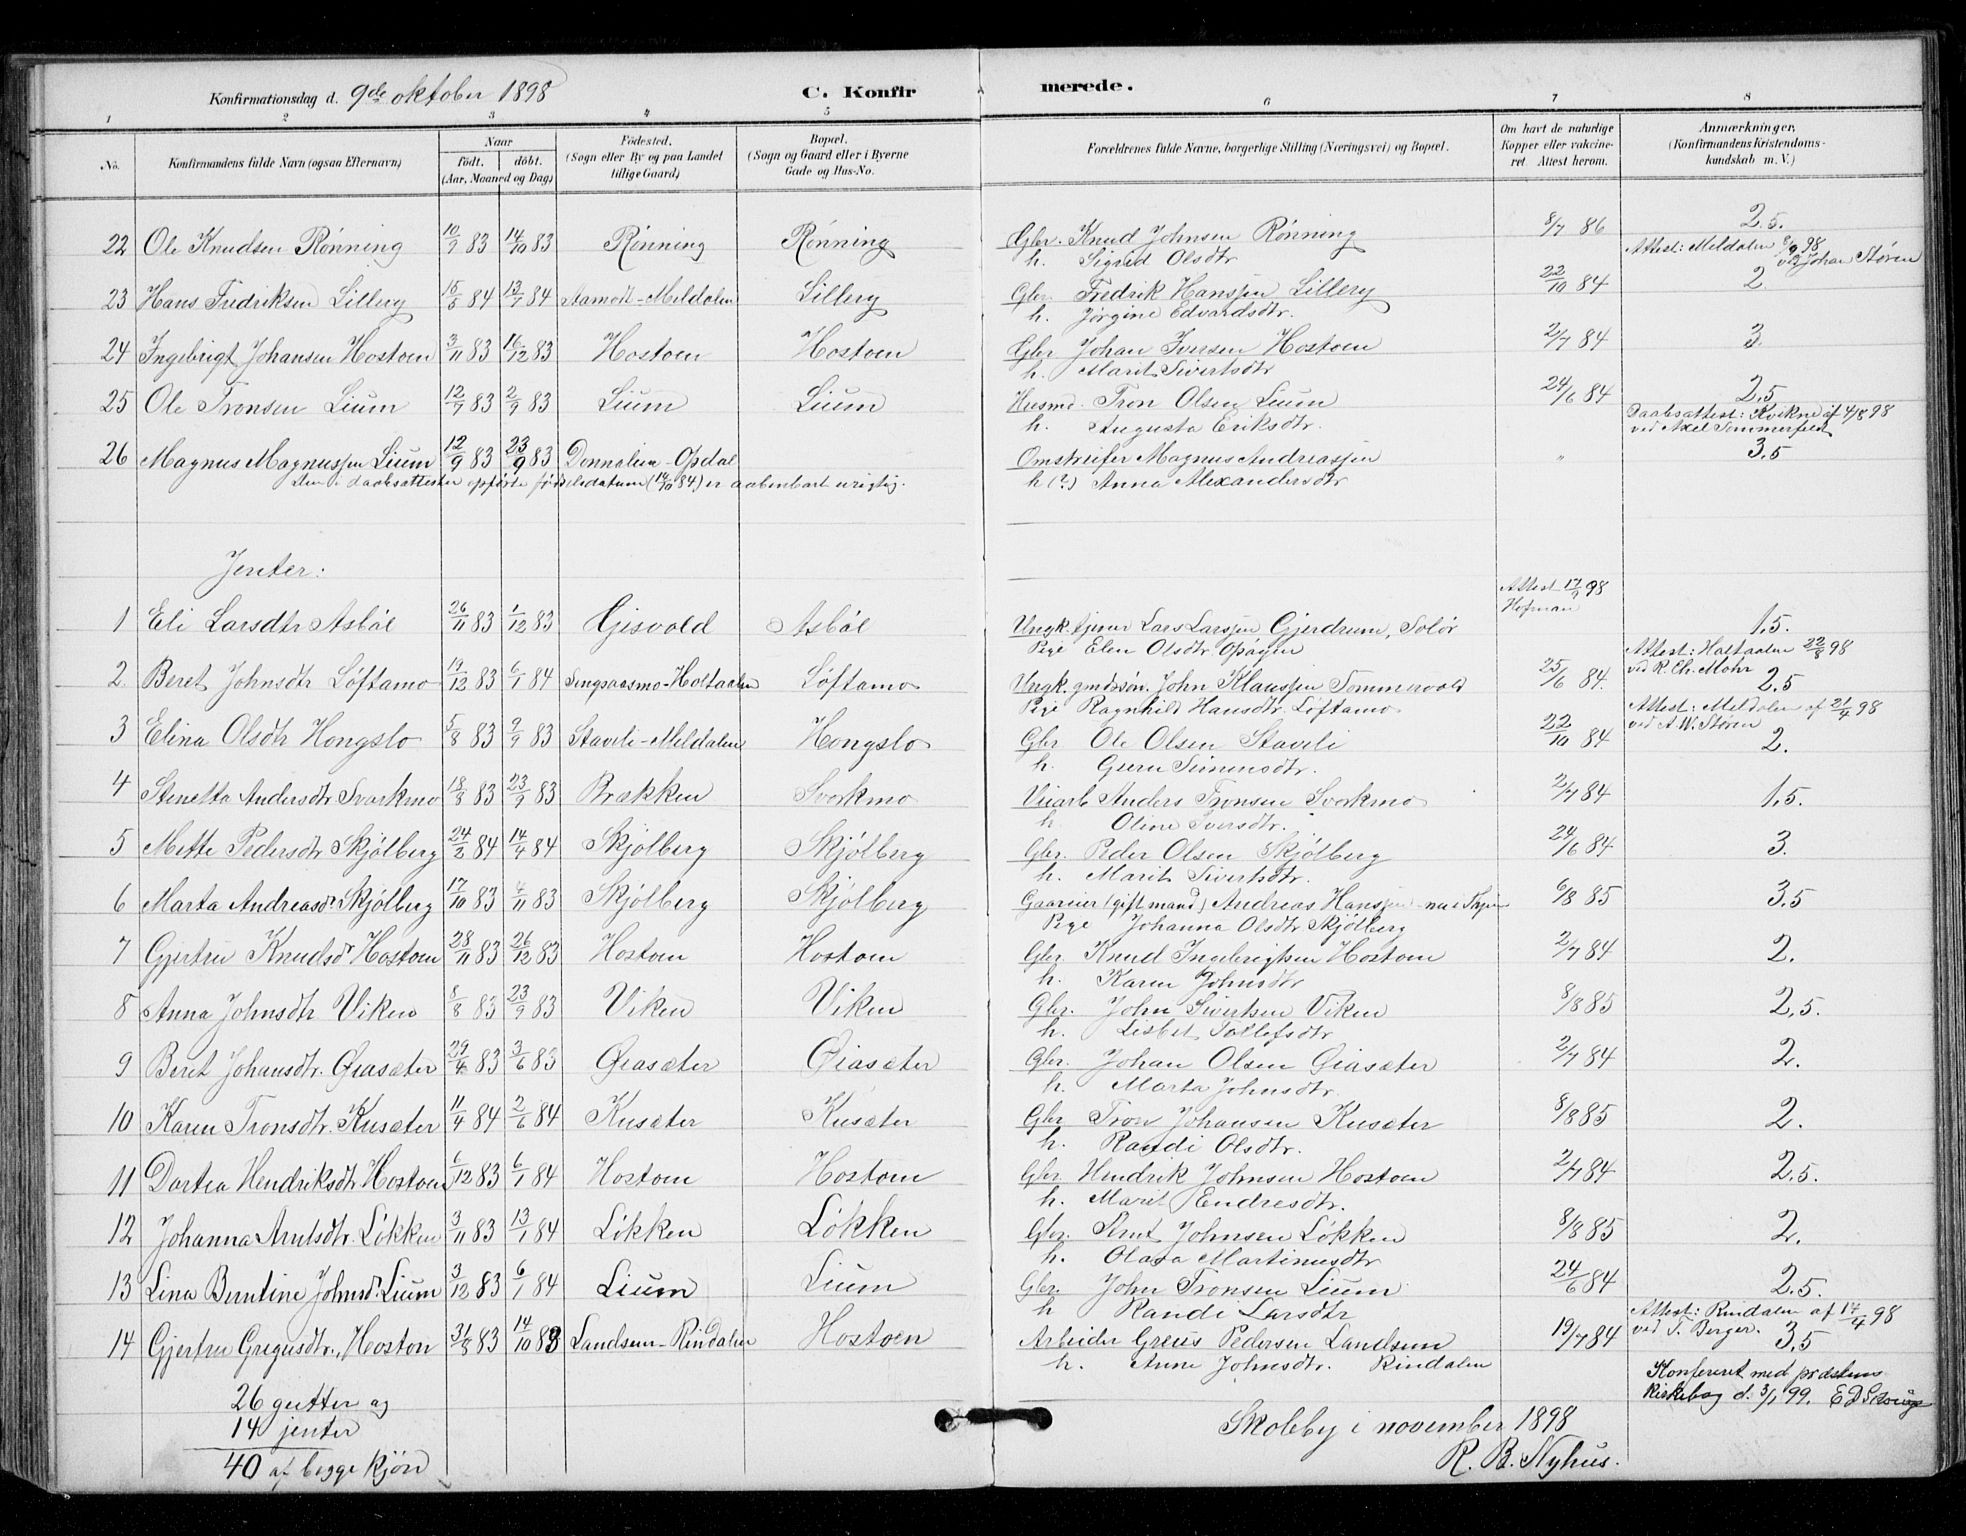 Konfirmationsdag d. 9de oktober 1898 C. Konfirmerede.
1 2 3 4 5 6 7 8
No. Konfirmandens fulde Navn (ogsaa Efternavn) Naar födt. döbt. (Aar, Maaned og Dag) Födested. (Sogn eller By og paa Landet tillige Gaard) Bopæl. (Sogn og Gaard eller i Byerne Gade og Hus-No. Forældrenes fulde Navne, borgerlige Stilling (Næringsvei) og Bopæl. Om havt de naturlige Kopper eller vakcineret. Attest herom. Anmærkninger, (Konfirmandens Kristendomskundskab m. V.)
22 Ole Knudsen Rønning 10/9 83 14/10 83 Rønning Rønning Gbr. Knud Johnsen Rønning 8/7 86 2.5.
h. Sigrid Olsdtr Attest: Meldalen 98 ved Johan Støren
23 Hans Fredriksen Lillery 15/5 84 13/7 84 Aamot-Meldalen Lillery Gbr. Fredrik Hanssen Lillery 22/10 84 2.
h. Jørgine Edvardsdtr.
24 Ingebrigt Johansen Hostoen 3/11 83 16/12 83 Hostoen Hostoen Gbr Johan Iversen Hostoen 2/7 84 3.
h. Marit Sivertsdtr
25 Ole Tronsen Lium 12/7 83 2/9 83 Lium Lium Husmd. Tron Olsen Lium 24/6 84 2.5
h. Augusta Eriksdtr. Daabsattest: Kvikne af 4/8 98 ved Axel Sommerfelt
26 Magnus Magnussen Lium 12/9 83 23/9 83 Donnalien-Opdal Omstreifer Magnus Andreassen " 3.5
Den i daabsattesten opførte fødselsdatum (14/10 84) er aabenbart urigtig. h (?) Anna Alexandersdtr
Jenter:
Attest 17/9 98 Hofman
1 Eli Larsdtr Asbøl 26/11 83 1/12 83 Gisvold Asbøl Ungk. tjener Lars Larssen Gjerdrum, Solør 1.5.
Pige Elen Olsdtr Opdgen Attest: Holtaalen 22/8 98 ved R. Ch. Mohr
2 Beret Johnsdtr Løftamo 19/12 83 6/1 84 Singsaasmo-Holtaalen Løftamo Ungk. gmdssøn. John Klaussen Sommervold 25/6 84. 2.5
Pige Ragnhild Hansdtr. Løftamo Attest: Meldalen af 21/4 98 ved A.W. Støren
3 Elina Olsdtr Hongslo 5/8 83 2/9 83 Stavili-Meldalen Hongslo Gbr Ole Olsen Stavili 22/10 84 2.
h. Guru Simensdtr.
4 Stinetta Andersdtr Svarkmo 18/8 83 23/9 83 Brækken Svorkmo Veiarb Anders Tronsen Svorkmo 2/7 84 1.5.
h. Oline Iversdtr.
5 Mette Pedersdtr Skjølberg 24/2 84 14/4 84 Skjølberg Skjølberg Gbr. Peder Olsen Skjølberg 24/6 84 3.
h. Marit Sivertsdtr.
6 Marta Andreasdr Skjølberg 17/10 83 4/11 83 Skjølberg Skjølberg Gaareier (gift mand) Andreas Hanssen 6/8 85 3.5
Pige Johanna Olsdtr Skjølberg
7 Gjertru Knudsdr Hostoen 28/11 83 26/12 83 Hostoen Hostoen Gbr Knud Ingebrigtsen Hostoen 2/7 84 2.
h. Karen Johnsdtr
8 Anna Johnsdtr Viken 8/8 83 23/9 83 Viken Viken Gbr. John Sivertsen Viken 8/8 85 2.5.
h. Lisbet Tollefsdtr
9 Beret Johansdtr. Øiasæter 29/4 83 3/6 83 Øiasæter Øiasæter Gbr. Johan Olsen Øiasæter 2/7 84 2.
h. Marta Johnsdtr.
10 Karen Tronsdtr. Kusæter 11/4 84 2/6 84 Kusæter Kusæter Gbr Tron Johansen Kusæter 8/8 85 2.
h. Randi Olsdtr.
11 Dortea Hendriksdtr Hostoen 6/12 83 6/1 84 Hostoen Hostoen Gbr Hendrik Johnsen Hostoen 2/7 84 2.5.
h. Marit Endresdtr.
12 Johanna Arntsdtr. Løkken 3/11 83 13/1 84 Løkken Løkken Gbr. Arnt Johnsen Løkken 8/8 85 2.
h. Olava Martinusdtr
13 Lina Berntine Johnsdr. Lium 3/12 83 6/1 84 Lium Lium Gbr. John Tronsen Lium 24/6 84 2.5.
h Randi Larsdtr Attest: Rindalen af 17/4 98 ved T. Berger.
14 Gjertru Gregusdtr., Hoston 31/8 83 14/10 83 Landsem-Rindalen Hostoen Arbeider Greus Pedersen Landsem 19/7 84 3.5
h. Anne Johnsdtr. Rindalen
26 gutter og
14 jenter
40 af begge kjøn
Konfereret med prestens
kirkebog d. 3/1 99.
Skolby i november 1898
R. B. Nyhus.